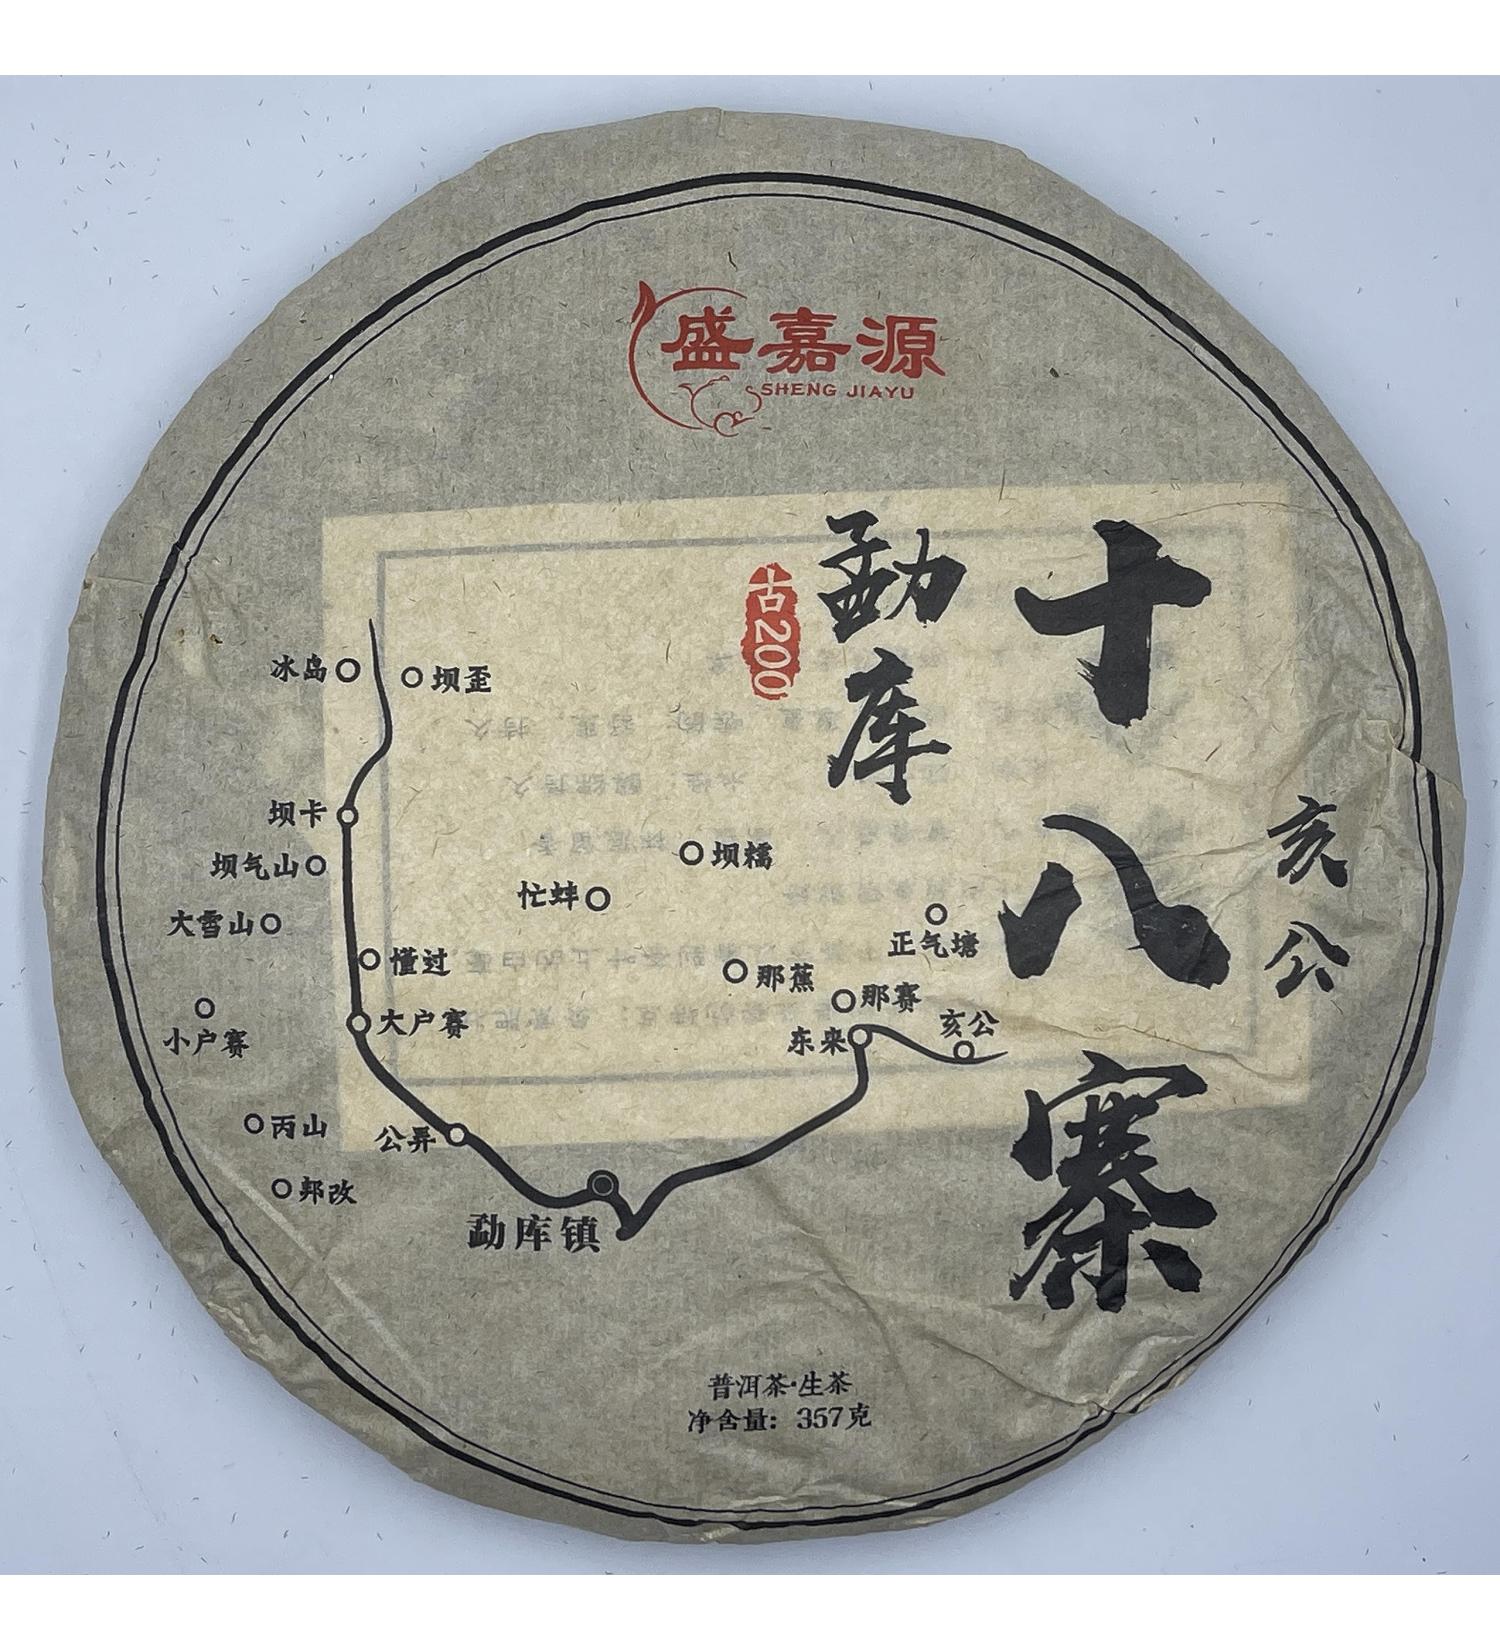 盛嘉源
SHENG JIAYU
勐库
十八寨
古200
亥公
冰岛
坝歪
坝卡
坝气山
坝糯
忙蚌
大雪山
正气塘
懂过
那蕉
那赛
小户赛
大户赛
东来
亥公
丙山
公弄
邦改
勐库镇
普洱茶·生茶
净含量：357克